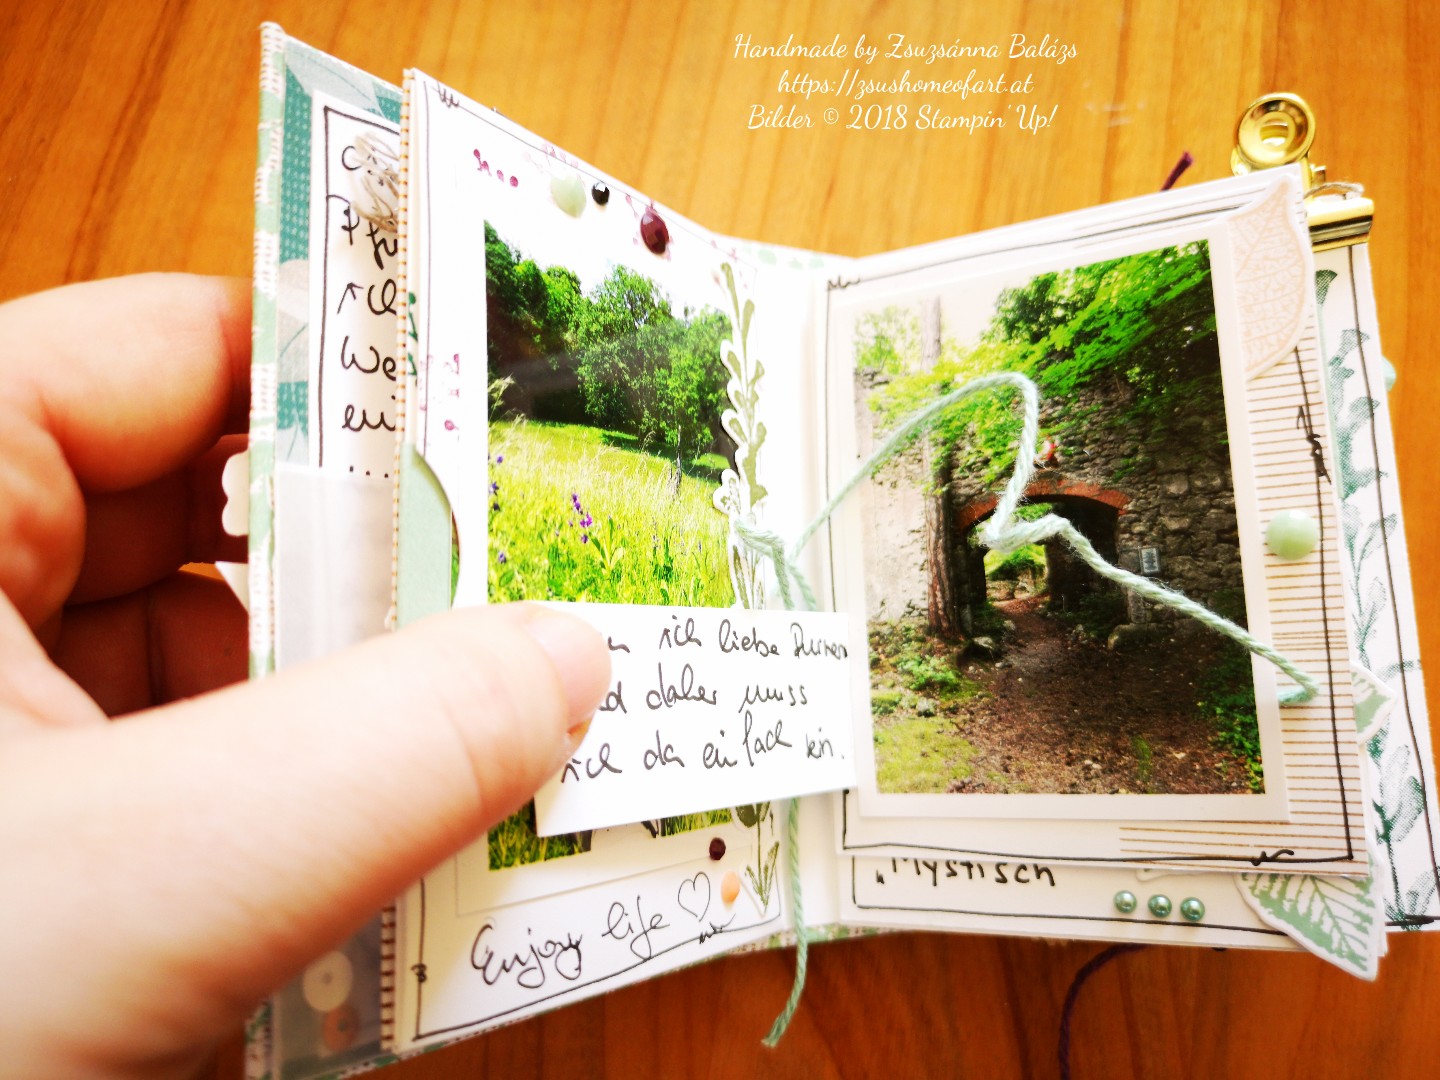 Handmade by Zsuzsánna Balázs
https://zsushomeofart.at
Bilder © 2018 Stampin' Up!
ich
We
ei
...
ich liebe
daher muss
ich da einfach
Enjoy life ♡
"Mystisch